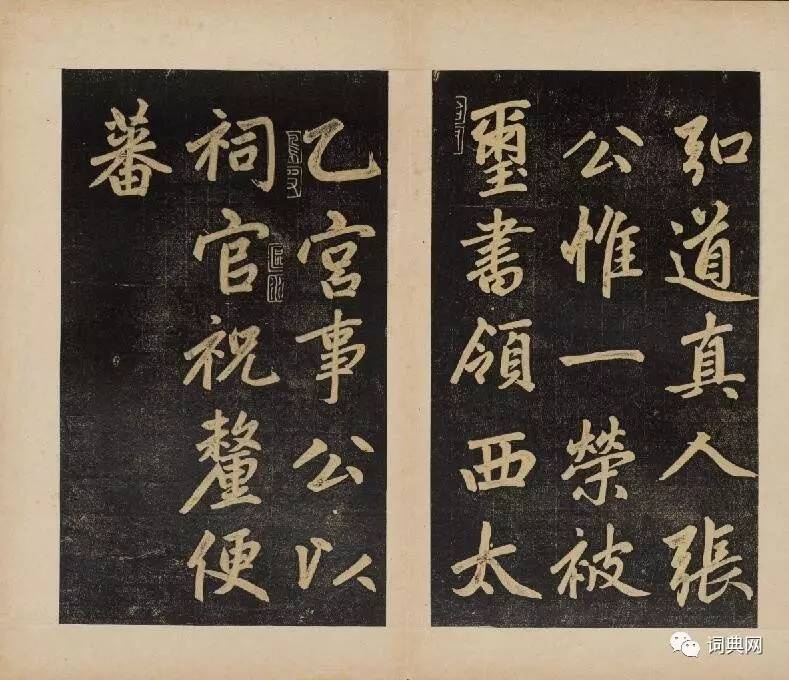 弘道真人張
公惟一榮被
璽書領西太
乙宮事公以
祠官祝釐便
蕃
词典网